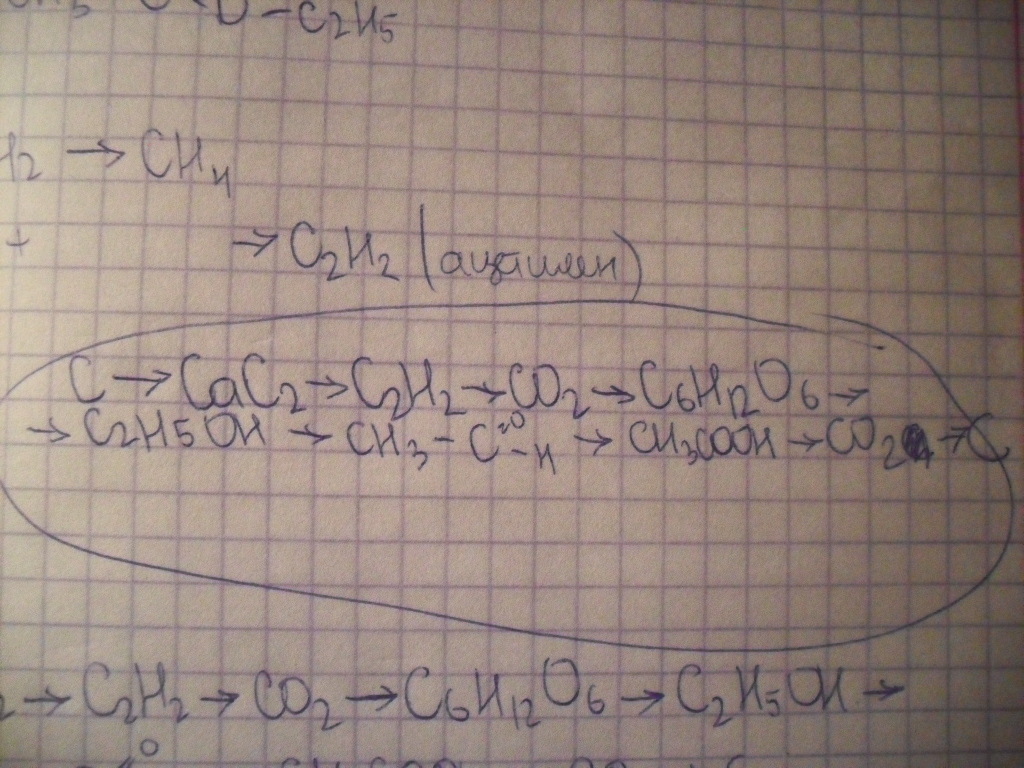 – C2H5
H2 → CH4
+ → C2H2 (ацетилен)
C → CaC2 → C2H2 → CO2 → C6H12O6 →
→ C2H5OH → CH3 – C =O – H → CH3COOH → CO2 → C
2 → C2H2 → CO2 → C6H12O6 → C2H5OH →
O